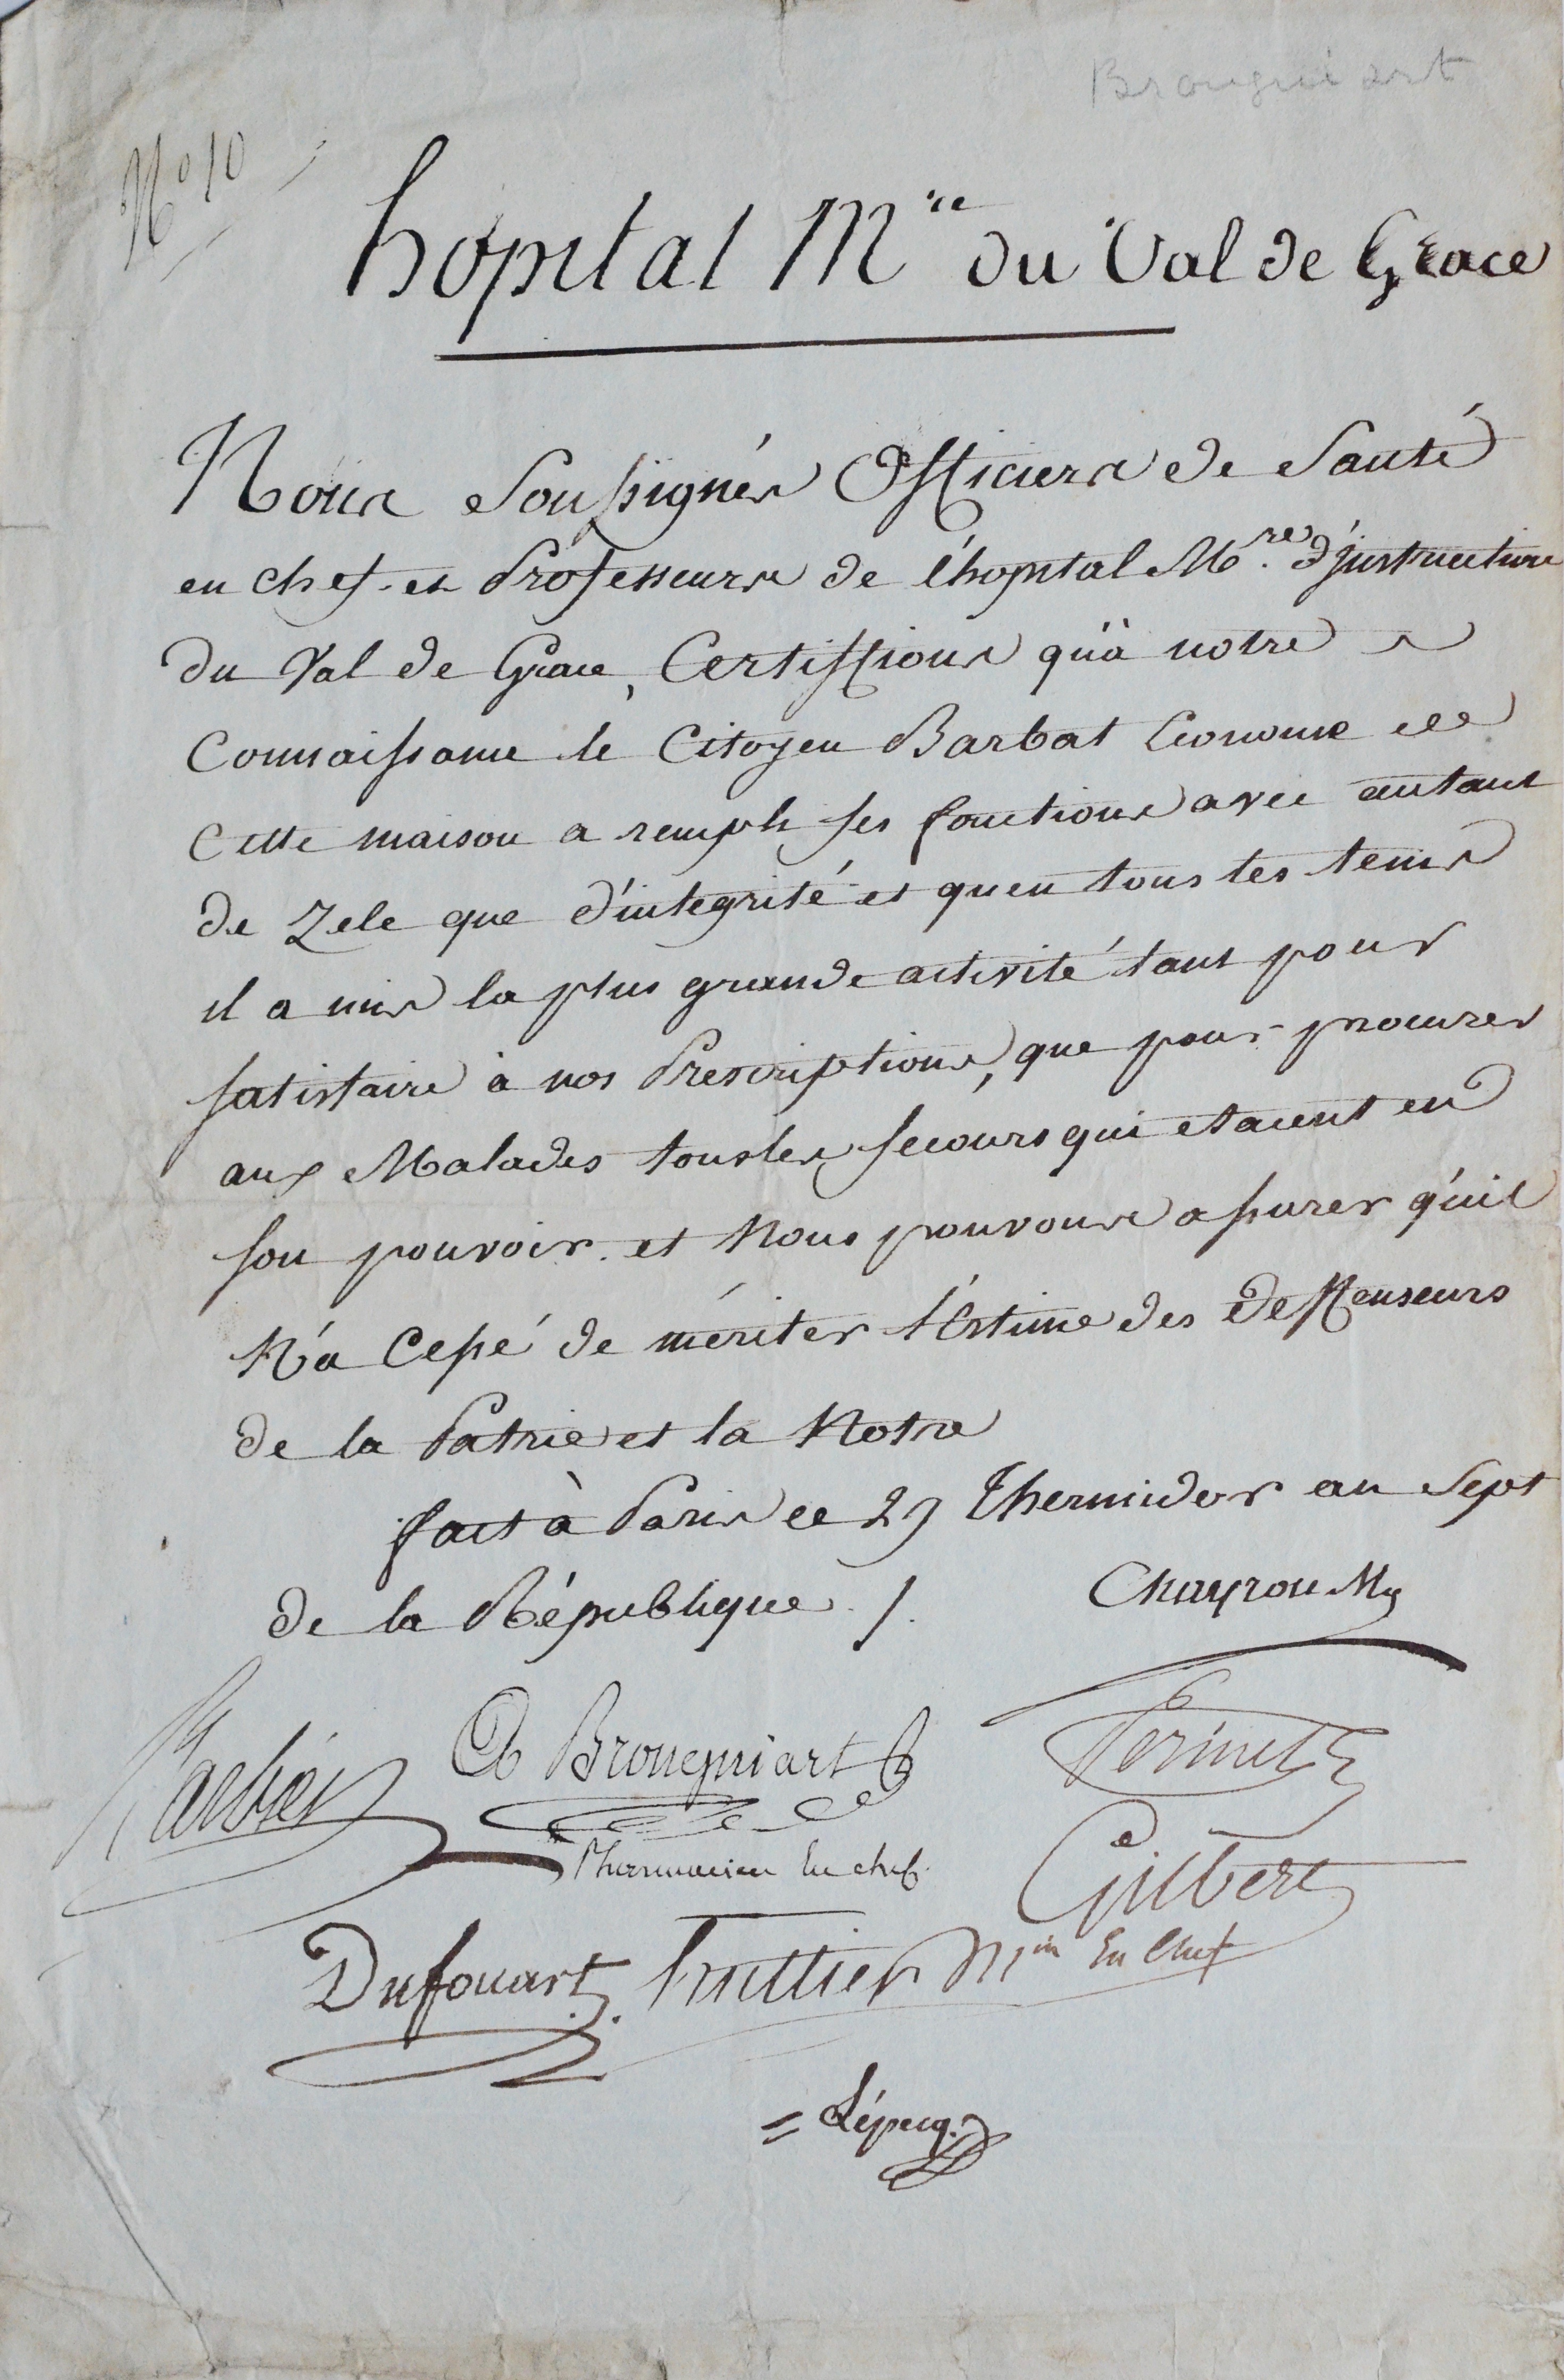 Brongniart
N° 10
hopital M.re du Val de Grace
Nous Soussignés Officiers de Santé
en chef et Professeurs de l'hopital M.re d'instruction
du Val de Grace, Certiffions qu'à notre
Connaissance le Citoyen Barbat Econome de
Cette maison a rempli ses fonctions avec autant
de Zele que d'integrité et qu'en tous les tems
il a mis la plus grande activité tant pour
satisfaire à nos Prescriptions, que pour procurer
aux Malades tous les secours qui etaient en
son pouvoir et Nous pouvons assurer qu'il
N'a Cessé de mériter l'Estime des Deffenseurs
de la Patrie et la Notre
fait à Paris ce 29 Thermidor an Sept
de la République /.
Chayrou
Barbier
A Brongniart
Pharmacien En chef.
Gilbert
Dufouart. Fruttier M.in En Chef
= Lépecq.